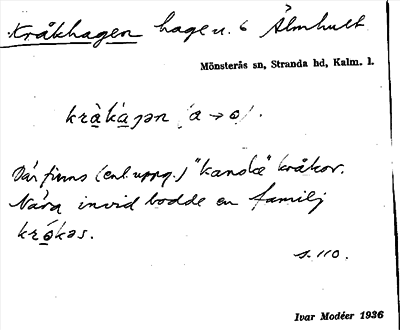 Kråkhagen hage u. 6 Älmhult
Mönsterås sn, Stranda hd, Kalm. l.
kràk̀aɡən (a → o).
Där finns (enl. uppg.) "kanske" kråkor.
Nära invid bodde en familj
kråkəs.
s. 110.
Ivar Modéer 1936